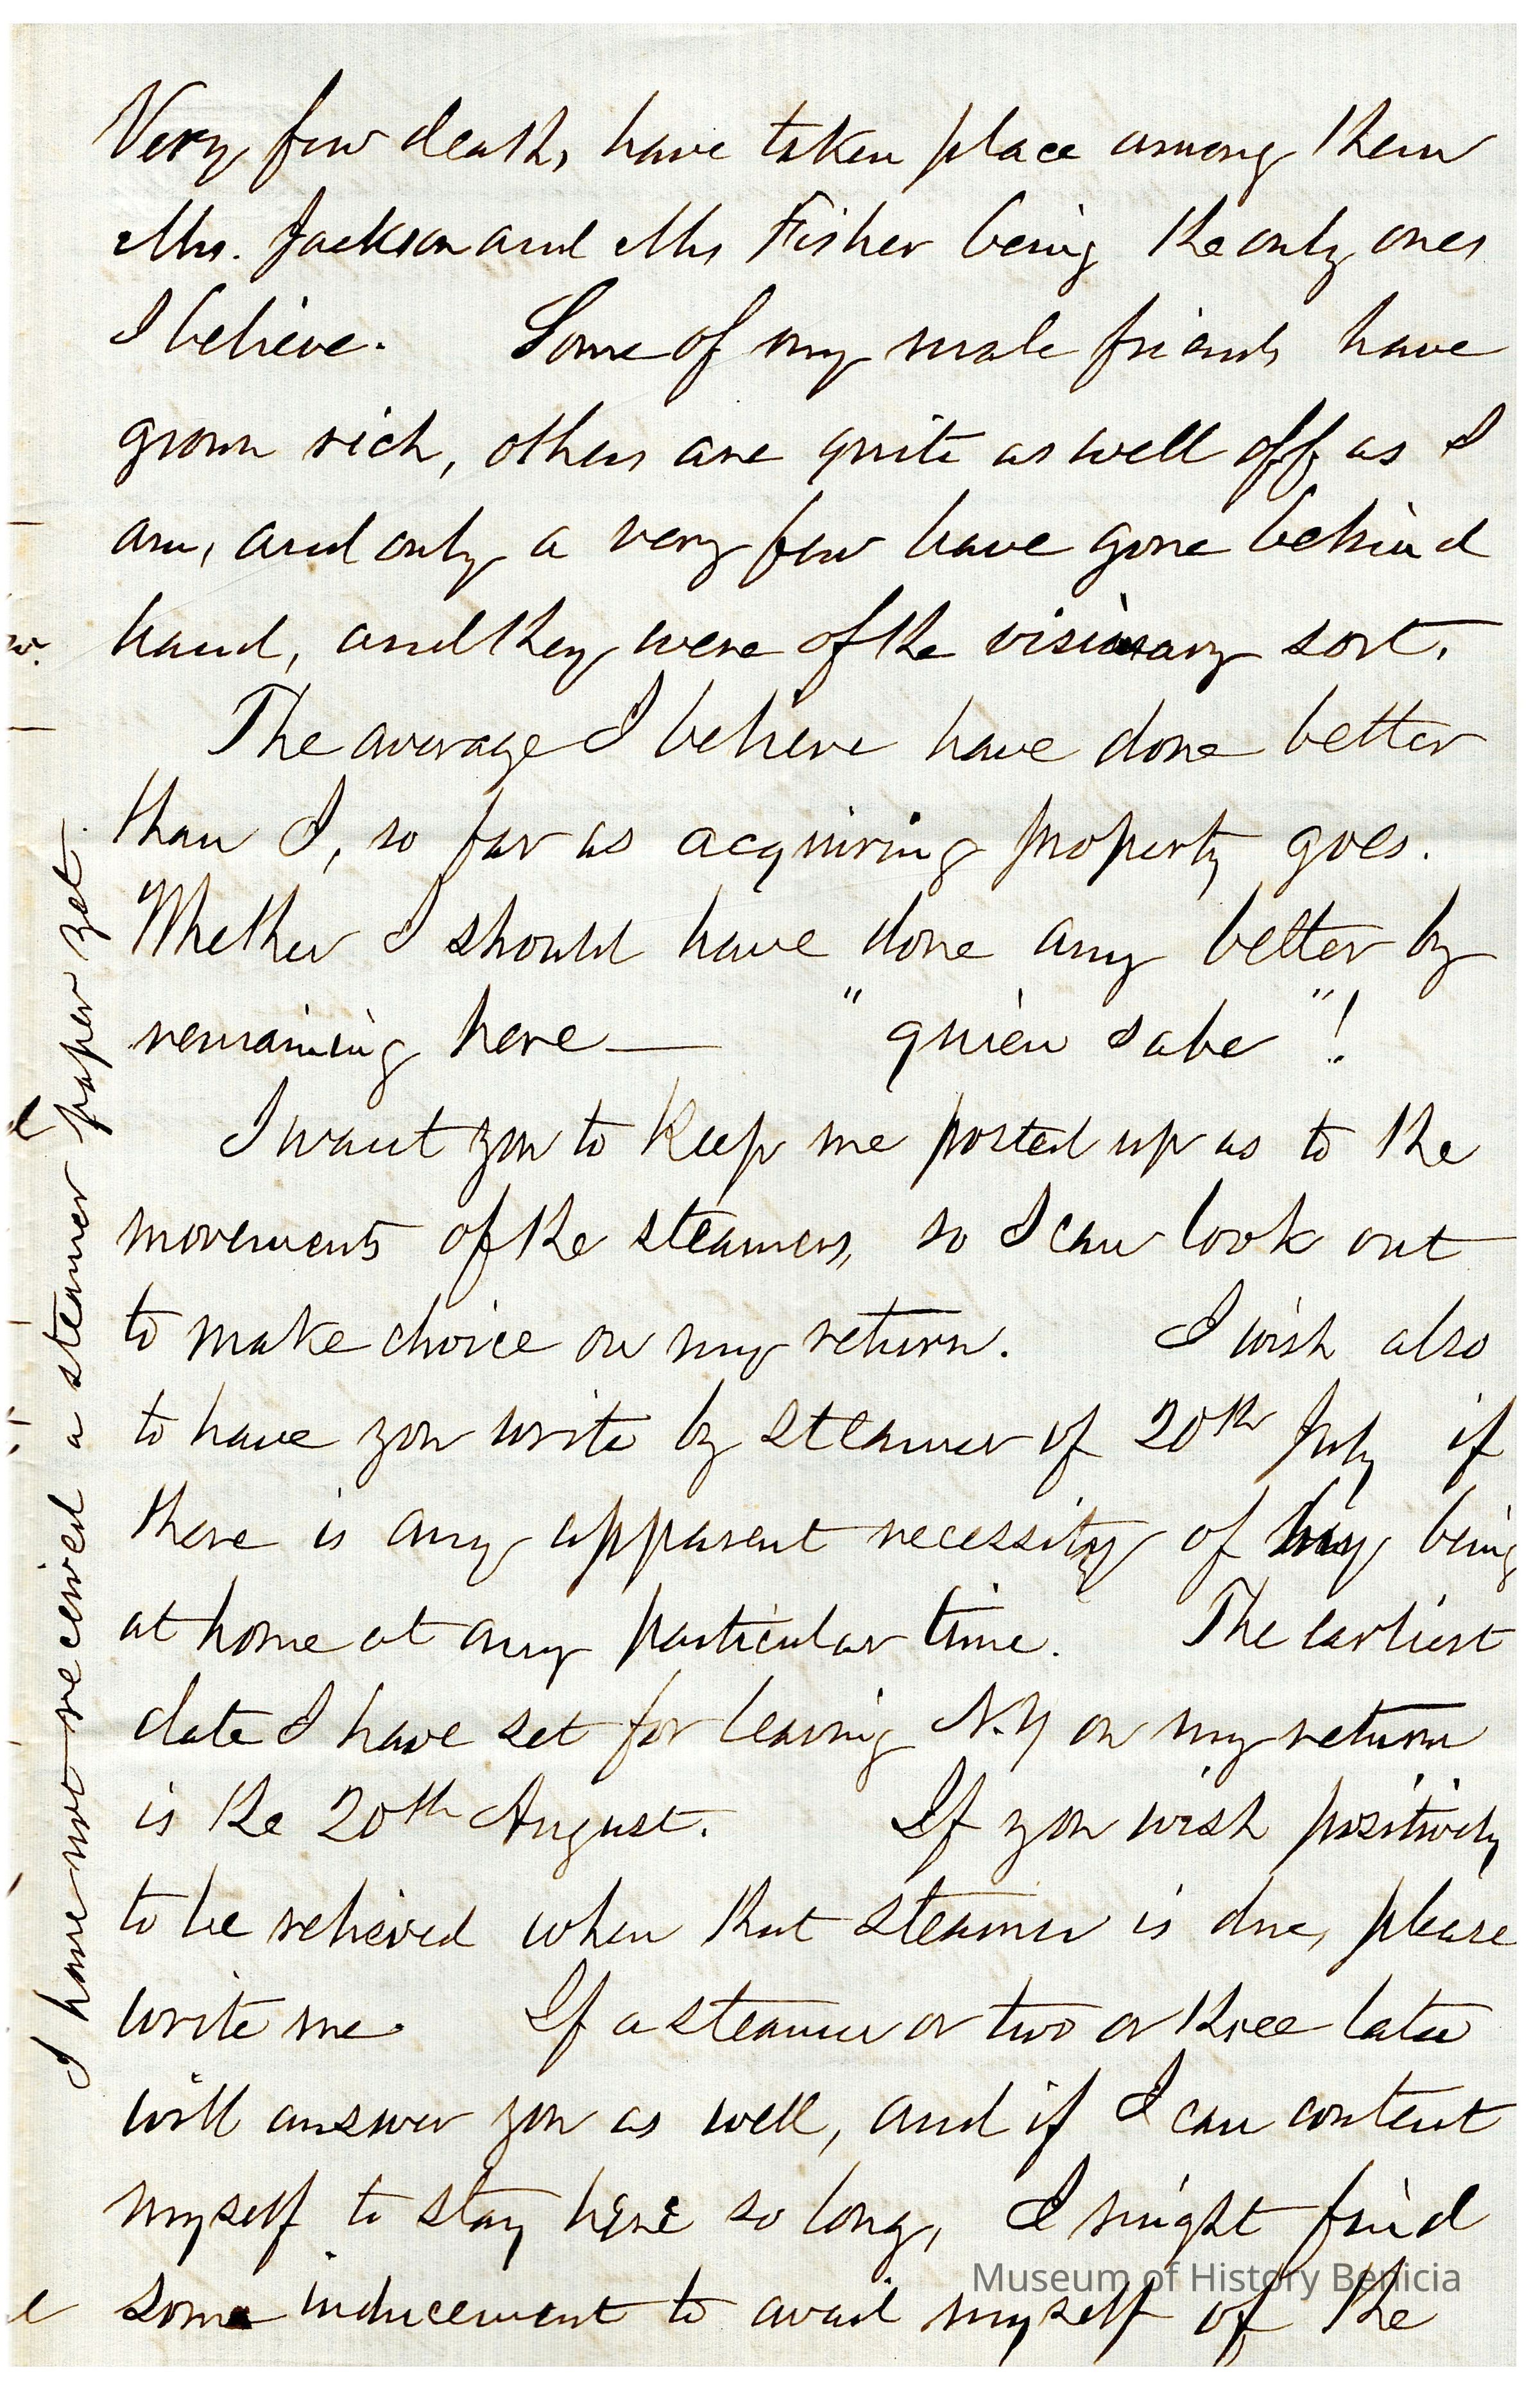 Very few deaths have taken place among them
Mrs. Jackson and Mrs Fisher being the only ones
I believe. Some of my male friends have
grown rich, others are quite as well off as I
am, and only a very few have gone behind
hand, and they were of the visionary sort.
The average I believe have done better
than I, so far as acquiring property goes.
Whether I should have done any better by
remaining here — "quien sabe"!
I want you to keep me posted up as to the
movements of the steamers, so I can look out
to make choice on my return. I wish also
to have you write by steamer of 20th July if
there is any apparent necessity of my being
at home at any particular time. The earliest
date I have set for leaving N.Y on my return
is the 20th August. If you wish positively
to be relieved when that steamer is due, please
write me. If a steamer or two or three later
will answer you as well, and if I can content
myself to stay here so long, I might find
some inducement to avail myself of the
I have not received a steamer paper yet.
Museum of History Benicia